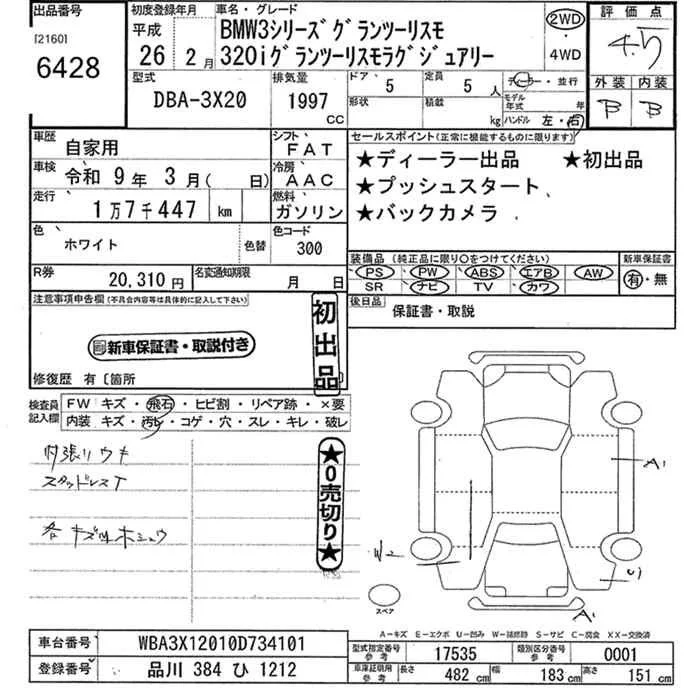 出品番号
[2160]
6428
初度登録年月
平成
26 2月
車名・グレード
BMW3シリーズグランツーリスモ
320iグランツーリスモラグジュアリー
2WD
・
4WD
評価点
4.5
外装 内装
B B
型式
DBA-3X20
排気量
1997
CC
ドア 5
定員 5 人
形状
積載 kg
ディーラー・並行
モデル年式 年
ハンドル 左・右
車歴 自家用
シフト FAT
車検 令和 9年 3月( 日)
冷房 AAC
走行 1万7千447 km
燃料 ガソリン
色 ホワイト
色替
色コード 300
R券 20,310円
名変通知期限 月 日
セールスポイント(正常に機能するものに限ります)
★ディーラー出品 ★初出品
★プッシュスタート
★バックカメラ
装備品(純正品に限り○をつけてください)
PS PW ABS エアB AW
SR ナビ TV カワ
新車保証書
有・無
後日品 保証書・取説
注意事項申告欄(不具合内容等は具体的に記入して下さい)
新車保証書・取説付き
初出品
修復歴 有〔箇所
検査員記入欄
FW キズ・飛石・ヒビ割・リペア跡・×要
内装 キズ・汚レ・コゲ・穴・スレ・キレ・破レ
内張リウキ
スタッドレスT
各キズ凹ホシュウ
★0売切り★
A1
W2
U1
A1
スペア
A−キズ E−エクボ U−凹み W−補修跡 S−サビ C−腐食 XX−交換済
車台番号 WBA3X12010D734101
登録番号 品川 384 ひ 1212
型式指定番号 参考 17535
類別区分番号 参考 0001
車庫証明用 参考 長さ 482 cm 幅 183 cm 高さ 151 cm